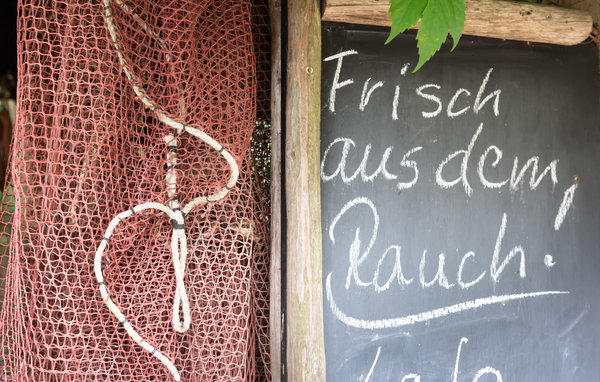 Frisch
aus dem
Rauch!